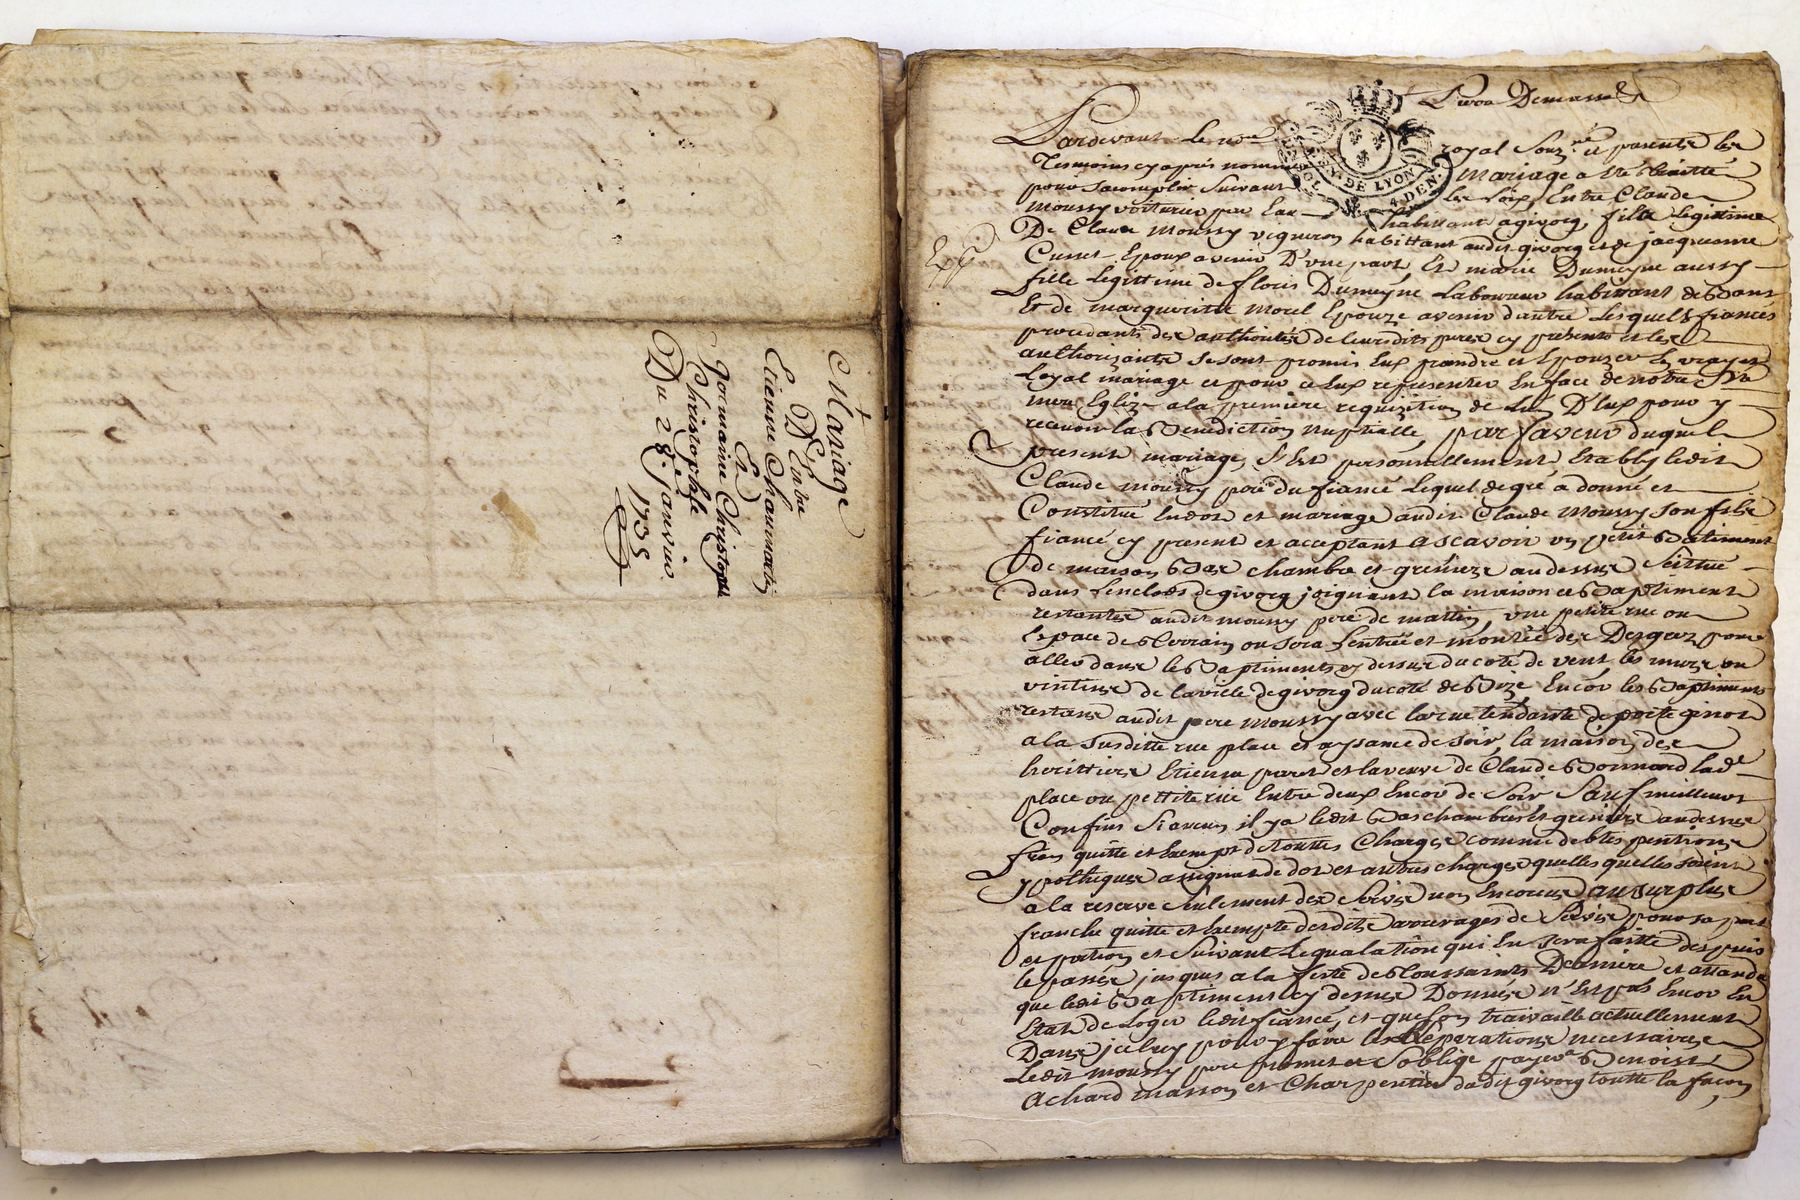 Mariage
D'Entre
Etienne Chaumartin
Et
Germaine Christophle
Christophle
Du 28.e janvier
1735
Pardevant le no.re royal souz.né et presents les
Temoins cy aprés nommés mariage a été traitté
pour sacomplir suivant les loix Entre Claude
moussy voiturier par Eau habittant agivorq, fils Legitime
De Claude moussy vigneron habittant audit givorq et de jacquemme
Cusset Epoux avenir D'vne part, Et marie Dumeyne aussy
fille Legittime de floris Dumeyne Laboureur habittant de
Et de margueritte morel Epouze avenir d'autre Lesquels fiancés
procedants des authorités de leursdits peres cy presents et les
authorizants se sont promis Eux prandre et Epouzer En vray et
Loyal mariage et pour ce Eux représenter En face de notre S.te
mere Eglize ala premiere requizition de Lun D'Eux pour y
recevoir la Benediction nuptialle, par faveur duquel
present mariage, s'Est personnellement Etably ledit
Claude moussy pere du fiancé Lequel de gré a donné et
Constitué En dot et mariage audit Claude moussy son fils
fiancé cy present et aceptant ascavoir vn petit Batiment
de maison Bas chambre et greniers au dessus scittué
dans Lenclos de givorq joignant la maison et Baptiment
restants audit moussy pere de mattin, vne petite rue ou
Espace de Terrain ou sera Lentrée et montée des Degrez pour
aller dans les Baptiments cy dessus du coté de vent, les murs ou
vintins de la ville de givorq du coté de Bize, Encor les Baptiments
restans audit pere moussy avec la rue tendante de porte
a la susditte rue place et aysance de soir, la maison des
heritiers Etienne paret et la veuve de Claude Bonnard lad.e
place ou pettite rüe Entre deux Encor de Soir Sauf meilleurs
Confins si aucuns il y a ledit Bas chambres et greniers au dessus
francs quitte et Exempt de Touttes Charges comme debtes pentions
ypotheques assignat de dot et autres charges quelles quelles soient
a la reserve seulement des servis non Encourus au surplus
franche quitte et Exempte desdits arrerages de Servis pour sa part
et portion et suivant Legualation qui En sera faitte des puis
le passé jusques a la feste de Toussaints Derniere et attandu
que ledit Baptiment cy dessus Donné n'Est pas Encor En
Etat de Loger ledit fiancé, et que Lon travaille actuellement
Dans jceluy pour y faire les Reparations necessaires
Ledit moussy pere promet et s'oblige payer a Benoist
Achard masson et Charpentier dudit givorq toutte la facon,